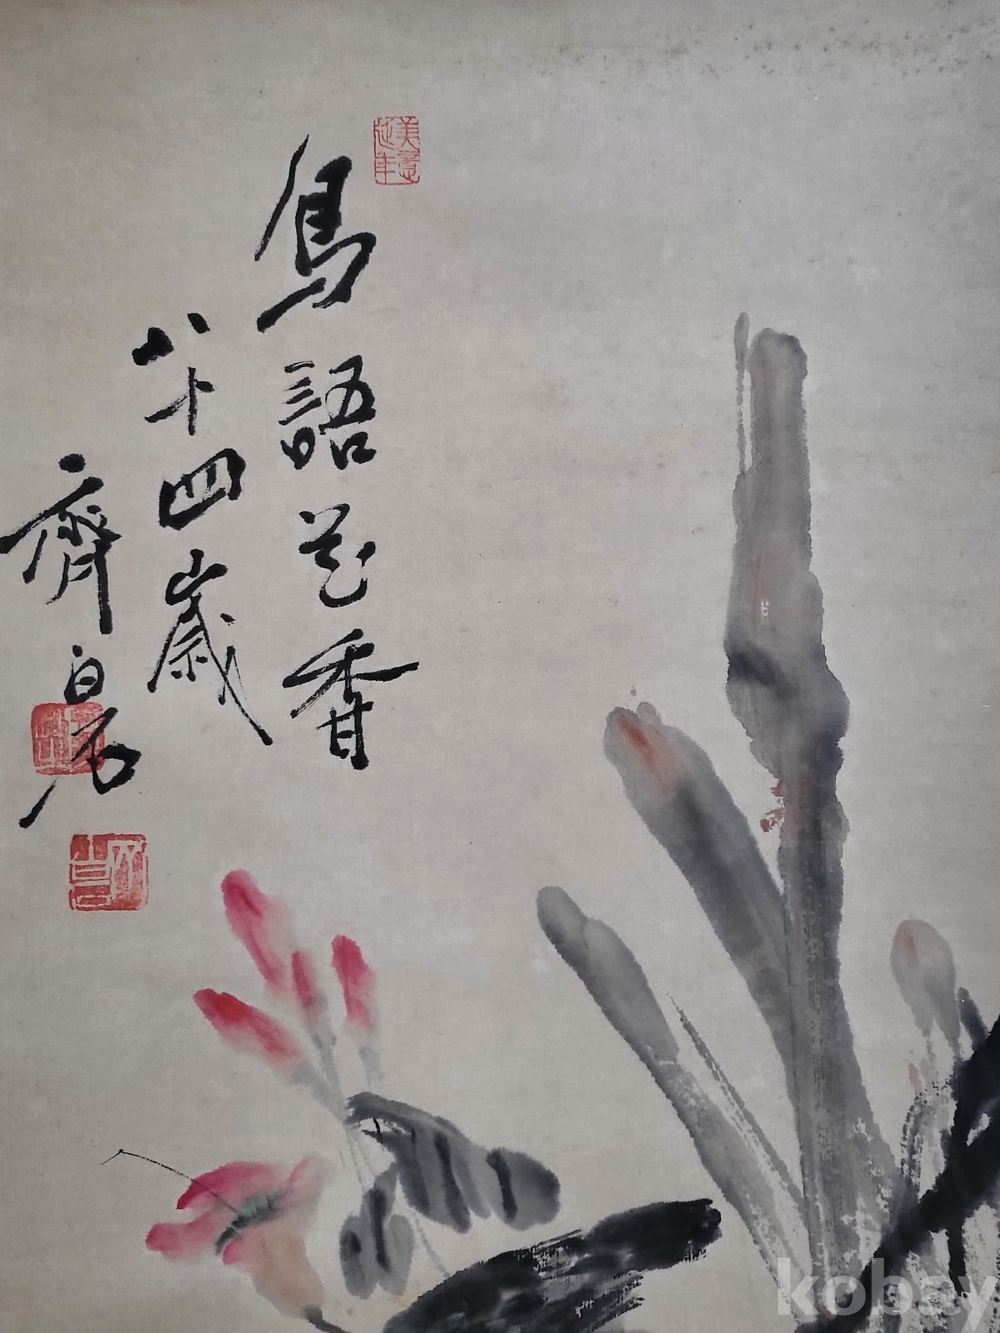 鳥語花香
八十四歲
齊白石
美意
延年
kobay